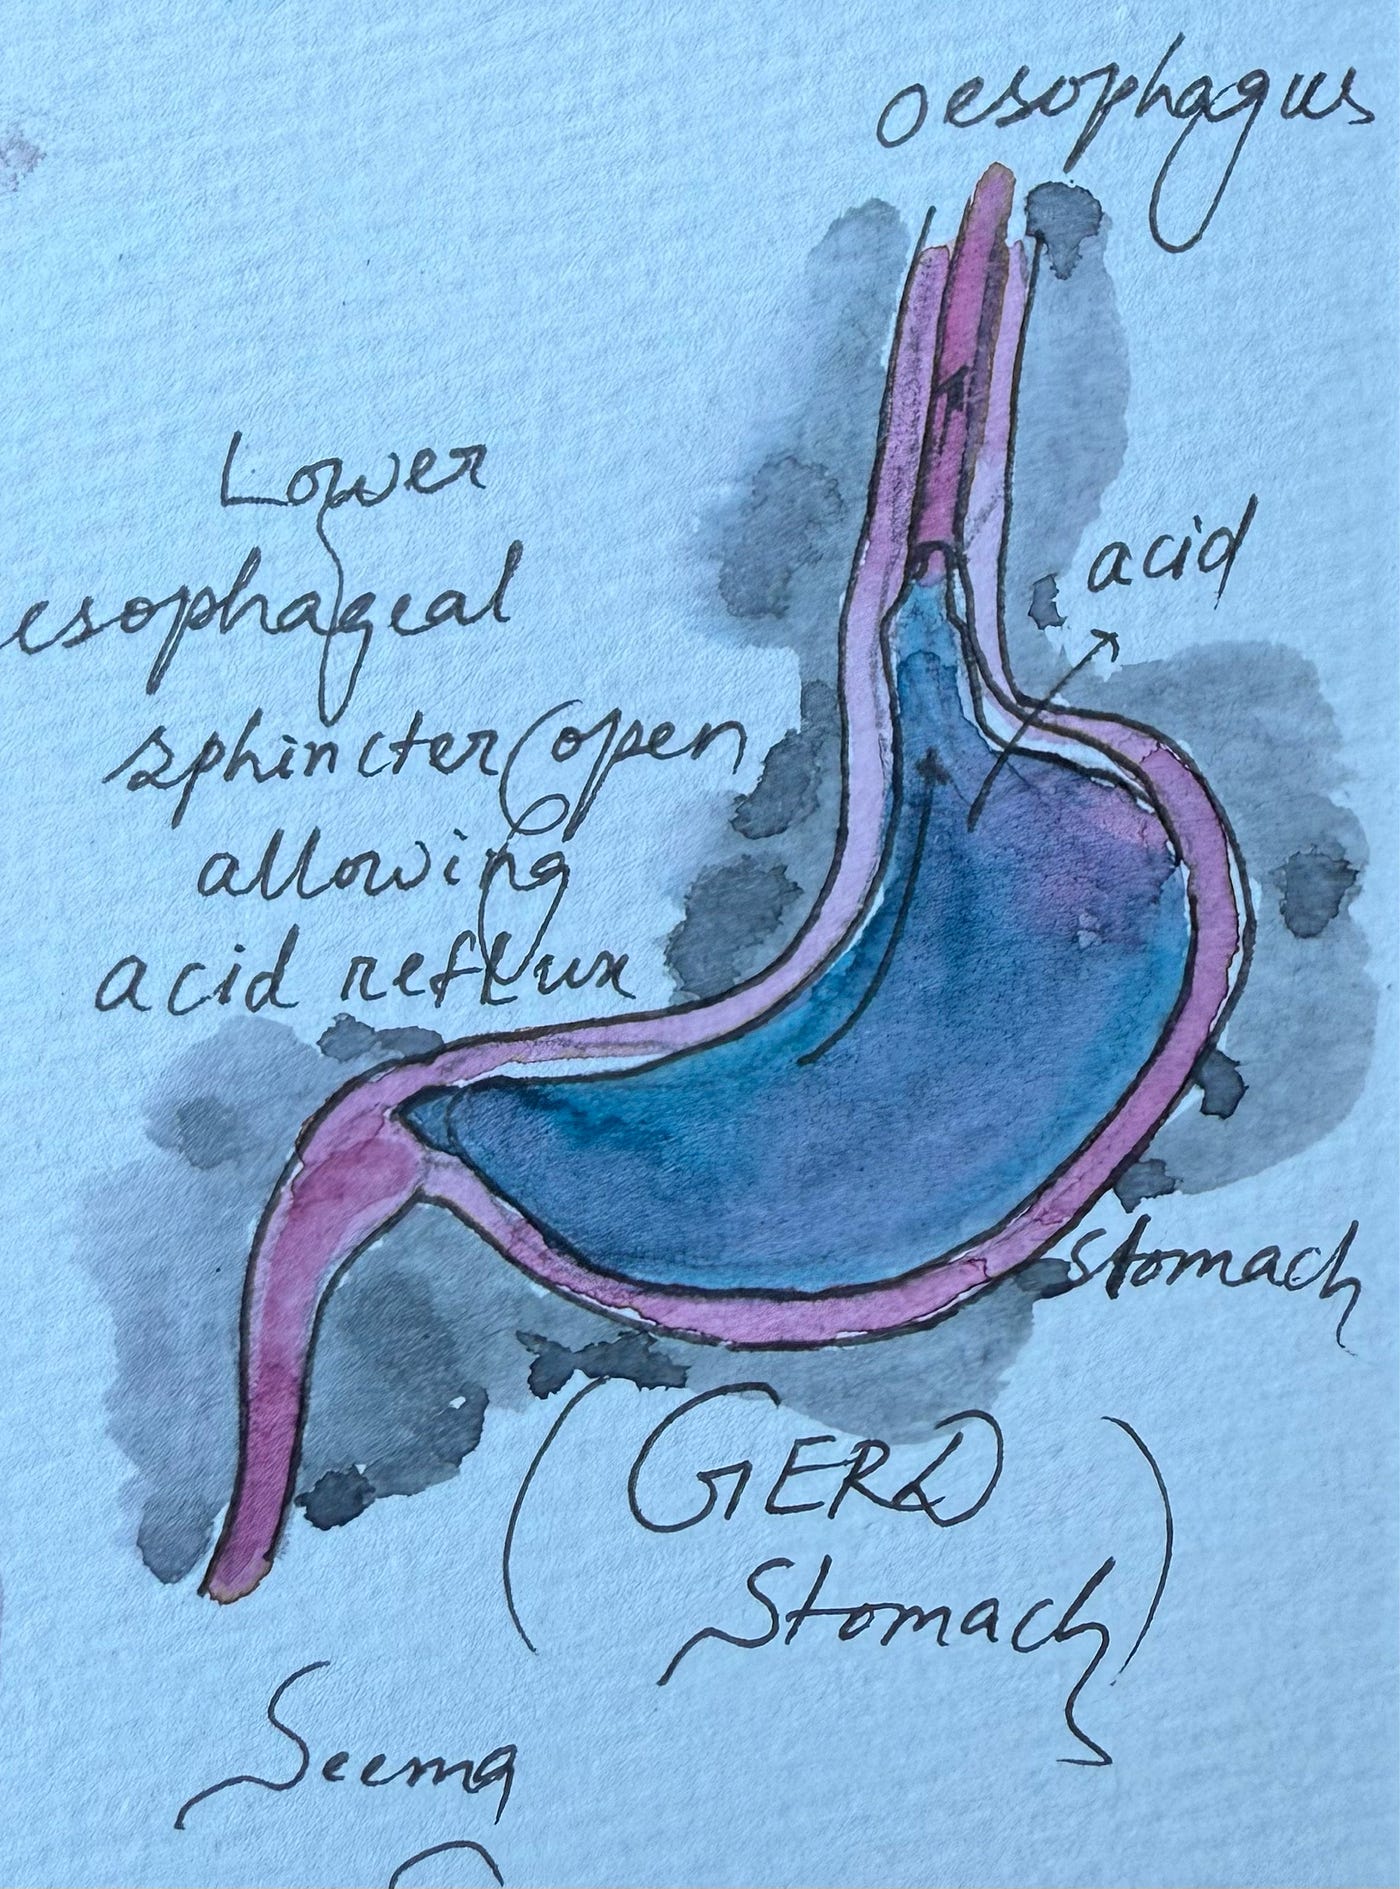 oesophagus
Lower
esophageal
sphincter open
allowing
acid reflux
acid
stomach
(GERD
Stomach)
Seema